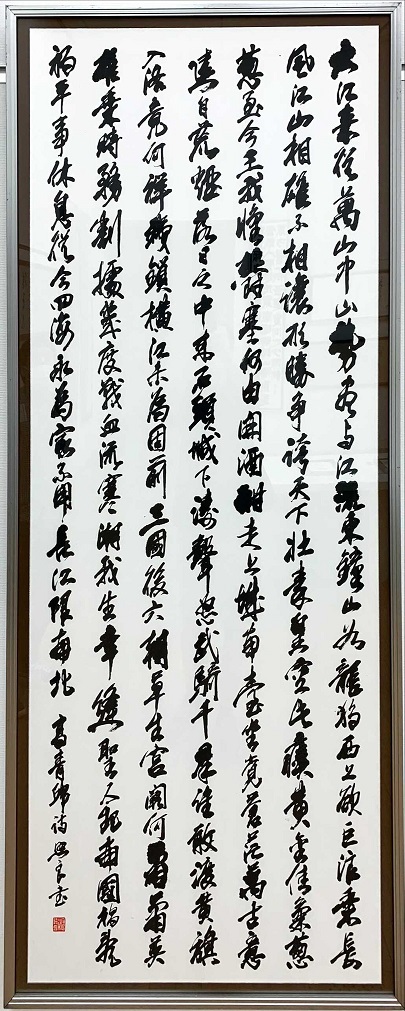 大江來從萬山中山勢盡與江流東鐘山如龍獨西上欲巨浪乘長
風江山相雄不相讓形勝爭誇天下壯秦皇空此瘞黃金佳氣蔥
蔥至今王我懷鬱塞何由開酒酣走上城南臺坐覺蒼茫萬古意
遠自荒煙落日之中來石頭城下濤聲怒武騎千群誰敢渡黃旗
入洛竟何祥鐵鎖橫江未為固前三國後六朝草生宮闕何蕭蕭英
雄乘時務割據幾度戰血流寒潮我生幸逢聖人起南國禍亂
初平事休息從今四海永為家不用長江限南北 高青邱詩